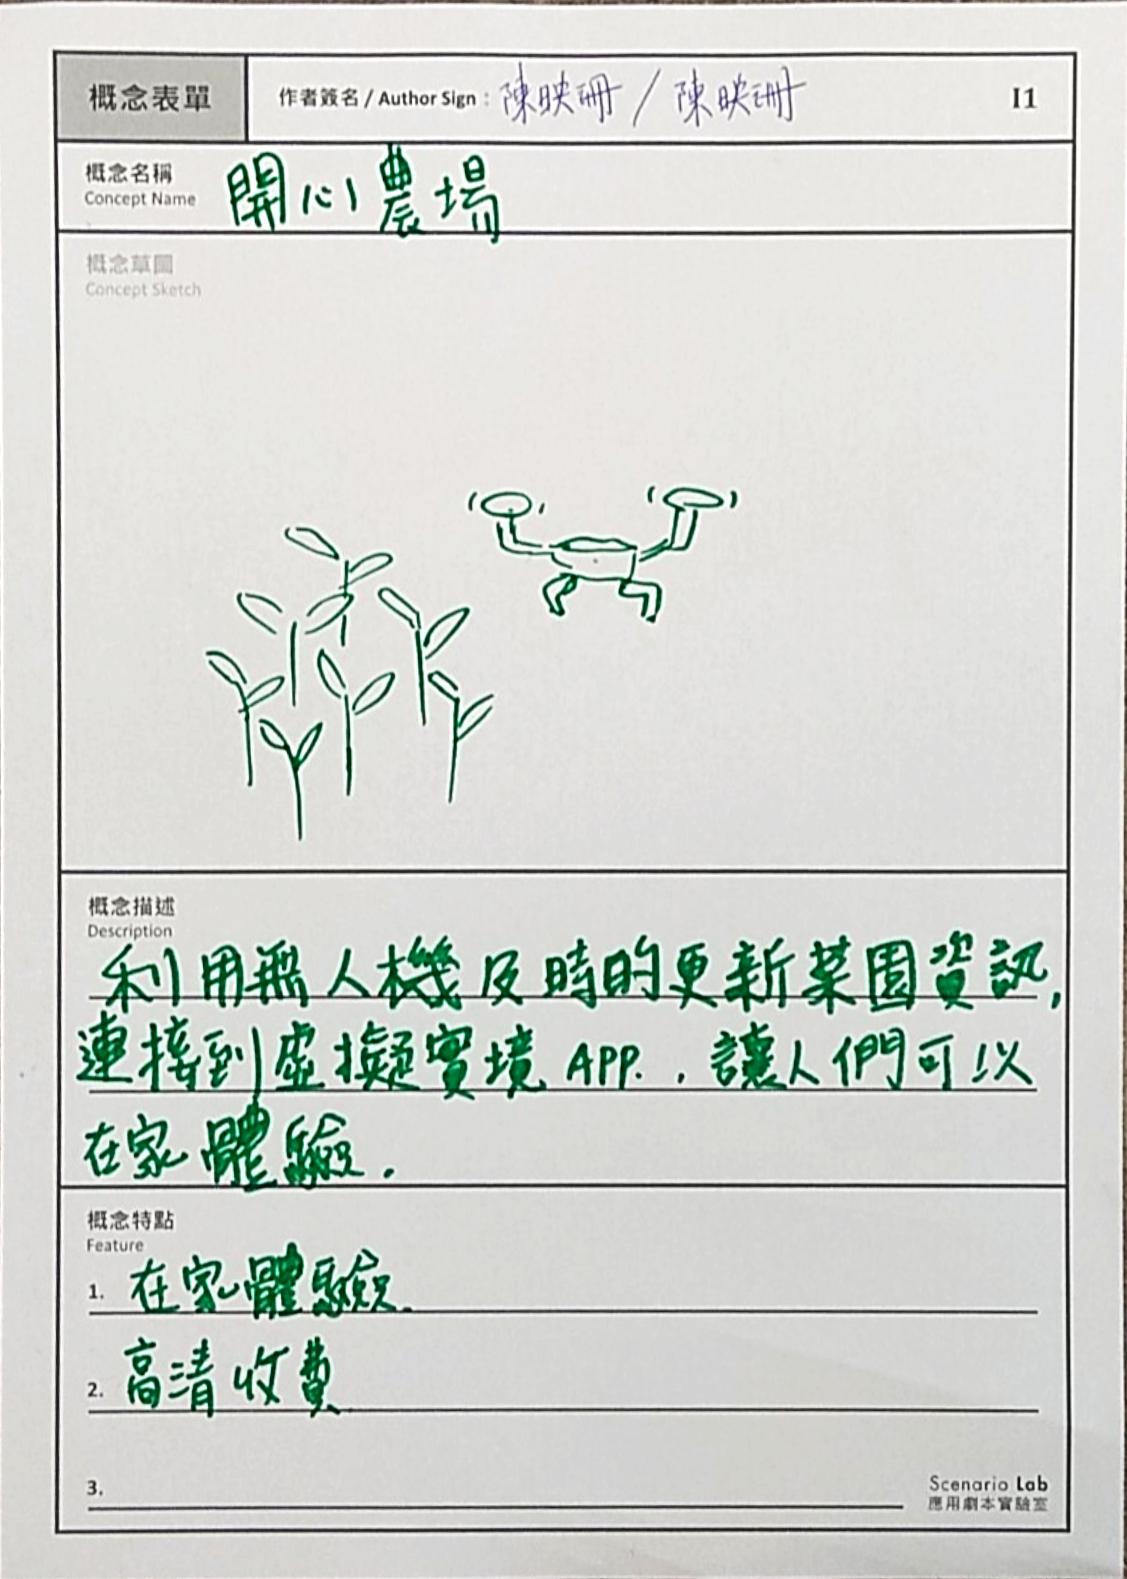 概念表單
作者簽名 / Author Sign : 陳映珊 / 陳映珊
I1
概念名稱
Concept Name
開心農場
概念草圖
Concept Sketch
概念描述
Description
利用無人機及時的更新菜園資訊,
連接到虛擬實境 APP. , 讓人們可以
在家體驗.
概念特點
Feature
1. 在家體驗.
2. 高清收費
3.
Scenario Lab
應用劇本實驗室